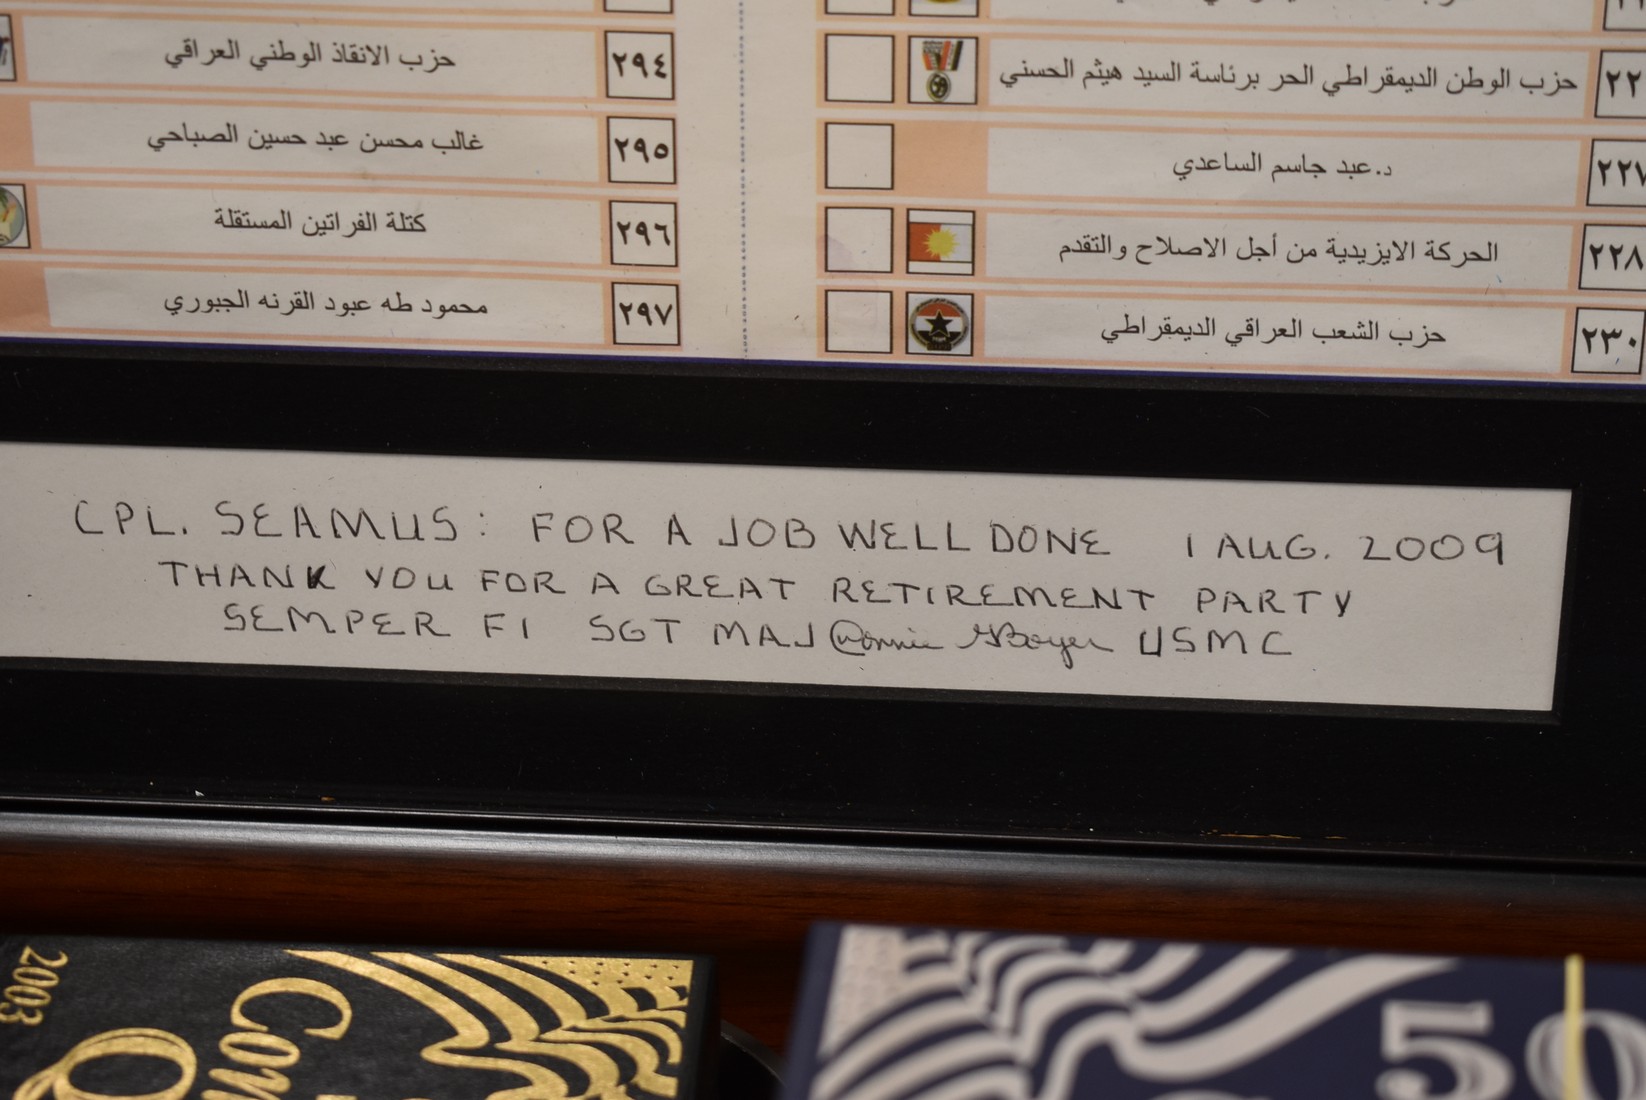 حزب الانقاذ الوطني العراقي ٢٩٤
غالب محسن عبد حسين الصباحي ٢٩٥
كتلة الفراتين المستقلة ٢٩٦
محمود طه عبود القرنه الجبوري ٢٩٧
حزب الوطن الديمقراطي الحر برئاسة السيد هيثم الحسني ٢٢
د.عبد جاسم الساعدي ٢٢٧
الحركة الايزيدية من أجل الاصلاح والتقدم ٢٢٨
حزب الشعب العراقي الديمقراطي ٢٣٠
CPL. SEAMUS: FOR A JOB WELL DONE 1 AUG. 2009
THANK YOU FOR A GREAT RETIREMENT PARTY
SEMPER FI SGT MAJ Connie G Boyer USMC
2003
50